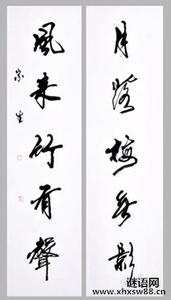 月落梅無影
風来竹有聲
谜语网
www.xhxsw88.cn